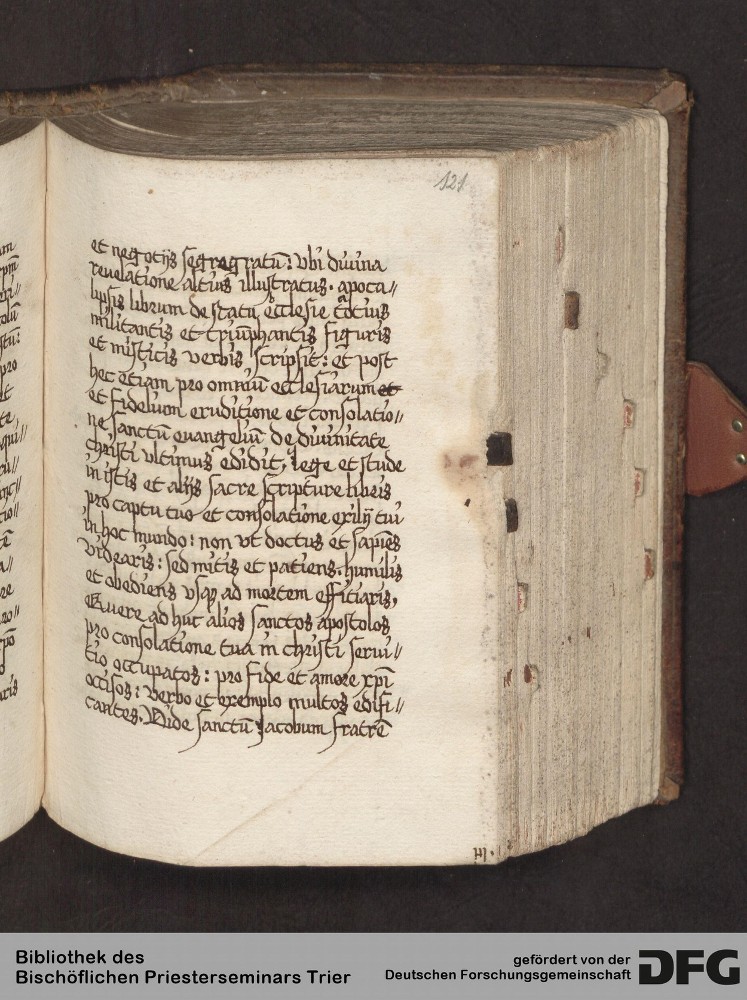 121
et negotijs segregatū: vbi diuina
reuelatione altius illustratus. apoca⸗
lipsis librum de statu ecclesie totius
militantis et triūphantis figuris
et misticis verbis scripsit: et post
hec etiam pro omniū ecclesiarum et
et fidelium eruditione et consolatio⸗
ne sanctū euangeliū de diuinitate
christi vltimus edidit, lege et stude
in istis et alijs sacre scripture libris
pro captu tuo et consolatione exilij tui
in hoc mundo: non vt doctus et sapiēs
videaris: sed mitis et patiens. humilis
et obediens vsqꝫ ad mortem efficiaris,
Quere ad huc alios sanctos apostolos
pro consolatione tua in christi serui⸗
tio occupatos: pro fide et amore xp̄i
occisos: verbo et exemplo multos edifi⸗
cantes. Vide sanctū Jacobum fratrē
Bibliothek des
Bischöflichen Priesterseminars Trier
gefördert von der
Deutschen Forschungsgemeinschaft
DFG